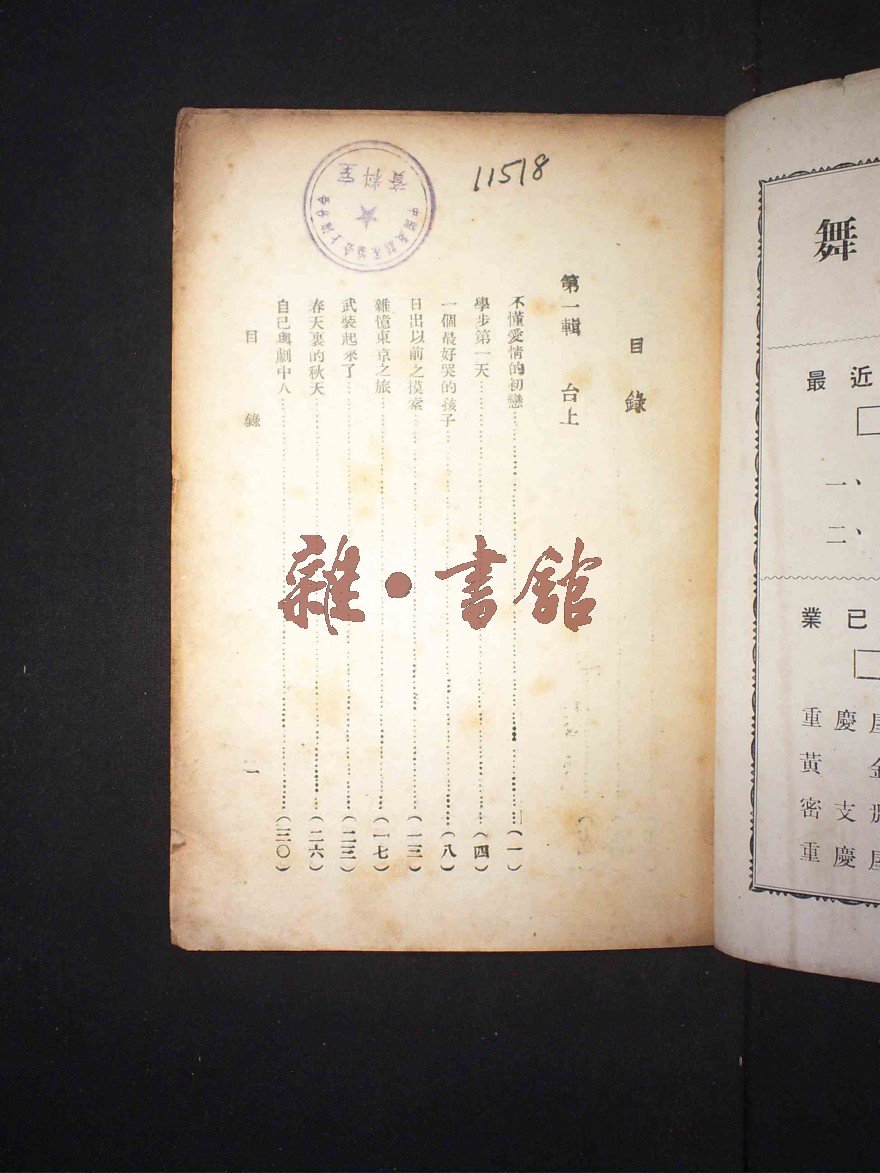 11518
資料室
目錄
第一輯 台上
不懂愛情的初戀(一)
學步第一天(四)
一個最好哭的孩子(八)
日出以前之摸索(一三)
雜憶東京之旅(一七)
武裝起來了(二三)
春天裏的秋天(二六)
自己與劇中人(三〇)
目錄
一
雜·書館
舞
最近
一、
二、
業已
重慶
黃金
密支
重慶